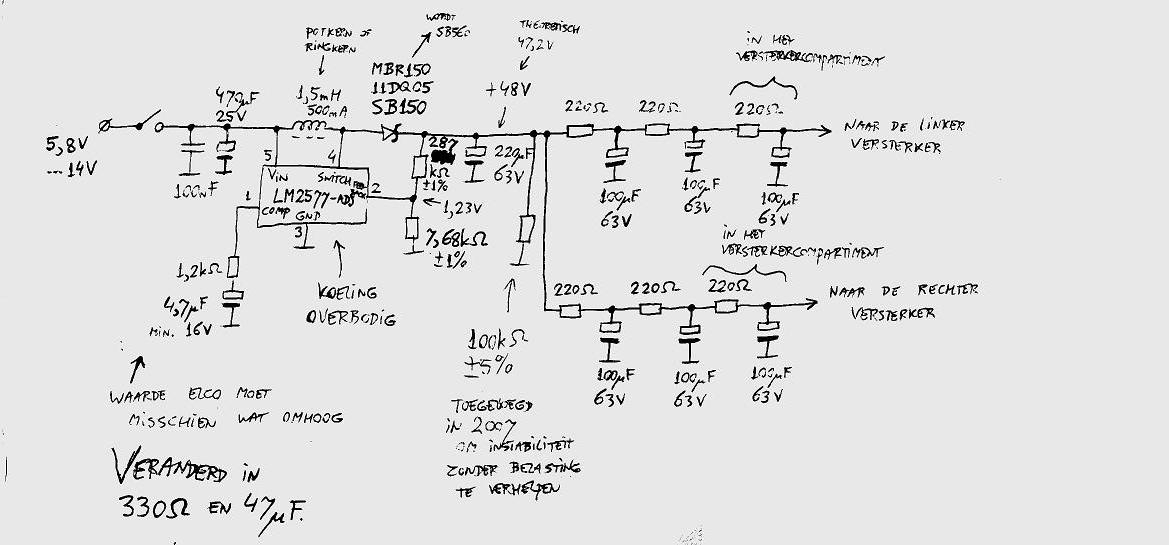 WORDT
SB560
THEORETISCH
47,2V
POTKERN OF
RINGKERN
IN HET
VERSTERKERCOMPARTIMENT
MBR150
11DQ05
SB150
+48V
470µF
25V
1,5mH
500mA
220Ω
220Ω
220Ω
NAAR DE LINKER
VERSTERKER
5,8V
... 14V
100nF
5
4
VIN
SWITCH
FEED
BACK
LM2577-ADJ
COMP
GND
1
2
3
287
kΩ
±1%
220µF
63V
1,23V
7,68kΩ
±1%
100µF
63V
100µF
63V
100µF
63V
IN HET
VERSTERKERCOMPARTIMENT
1,2kΩ
4,7µF
MIN. 16V
KOELING
OVERBODIG
220Ω
220Ω
220Ω
NAAR DE RECHTER
VERSTERKER
100kΩ
±5%
100µF
63V
100µF
63V
100µF
63V
WAARDE ELCO MOET
MISSCHIEN WAT OMHOOG
TOEGEVOEGD
IN 2007
OM INSTABILITEIT
ZONDER BELASTING
TE VERHELPEN
VERANDERD IN
330Ω EN 47µF.